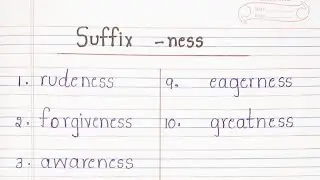 Suffix -ness
1. rudeness
2. forgiveness
3. awareness
9. eagerness
10. greatness